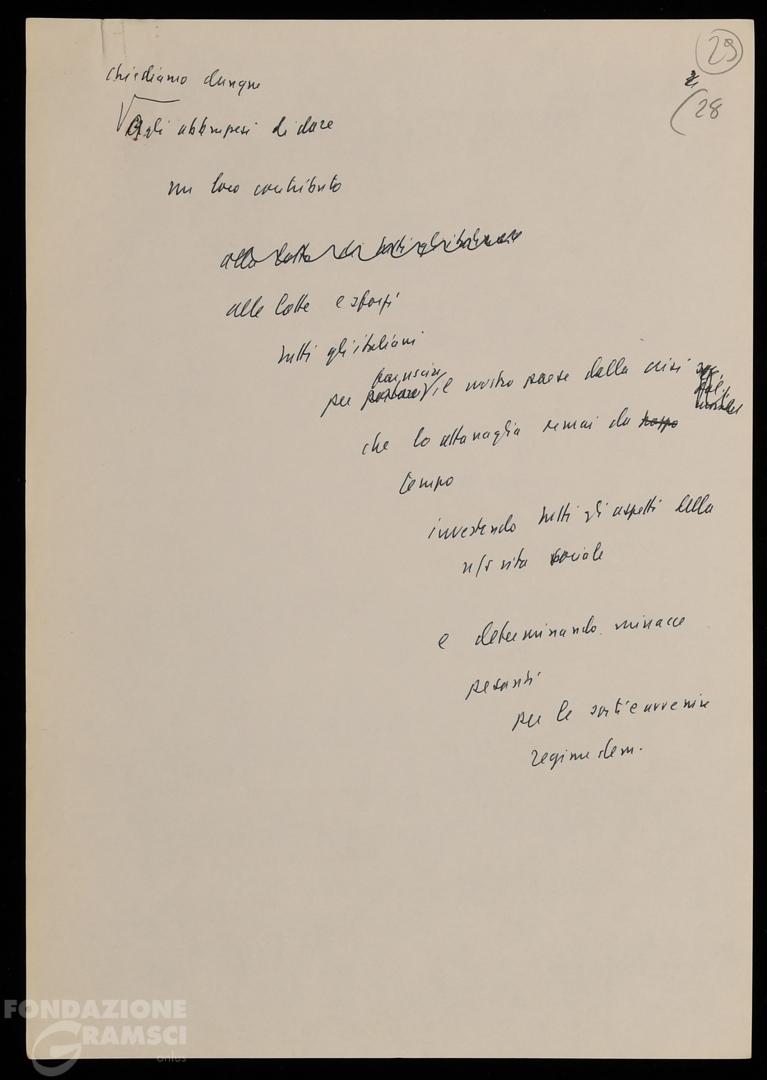 29
28
chiediamo dunque
Agli abbruzzesi di dare
un loro contributo
alla lotta di tutti gli italiani
alle lotte e sforzi
tutti gli italiani
far uscire
per portare il nostro paese dalla crisi
che lo attanaglia ormai da troppo
tempo
investendo tutti gli aspetti della
n/s vita sociale
e determinando minacce
pesanti
per le sorti e avvenire
regime dem.
FONDAZIONE
GRAMSCI
onlus